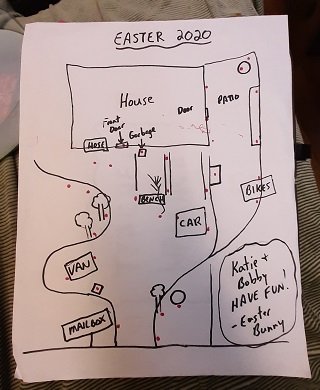 EASTER 2020
House
Door
PATIO
Front
Door
Garbage
HOSE
BENCH
BIKES
CAR
VAN
MAILBOX
Katie +
Bobby
HAVE FUN!
- Easter
Bunny